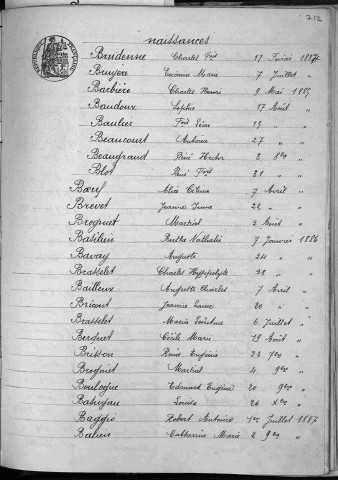 712
naissances
Brudenne Charles Ferd 11 Février 1884
Bruyère Maria 7 Juillet "
Barbière Charles Henri 9 Mai 1885
Baudoux Sophie 17 Août "
Baulier Ferd 19 "
Beaucourt Antoine 27 "
Beaugrand René Hector 2 8bre "
Blot René Ferd 31 "
Bœuf Alice Célina 7 Avril "
Brevet Jeanne Irma 22 " "
Brognet Martial 3 Août "
Basilien Berthe Nathalie 7 Janvier 1886
Bavay Auguste 24 " "
Brasselet Charles Hyppolyte 28 " "
Bailleux Auguste Charles 7 Avril "
Bricout Jeanne Laure 20 " "
Brasselet Maria 6 Juillet "
Berquet Cécile Marie 19 Août "
Brisson René Eugénie 23 7bre "
Brognet Martial 4 9bre "
Boulogne Edouard Eugène 20 9bre "
Bahujau Louise 26 Xbre "
Baggio Robert Antoine 1er Juillet 1887
Balieu Catherine Marie 2 9bre "